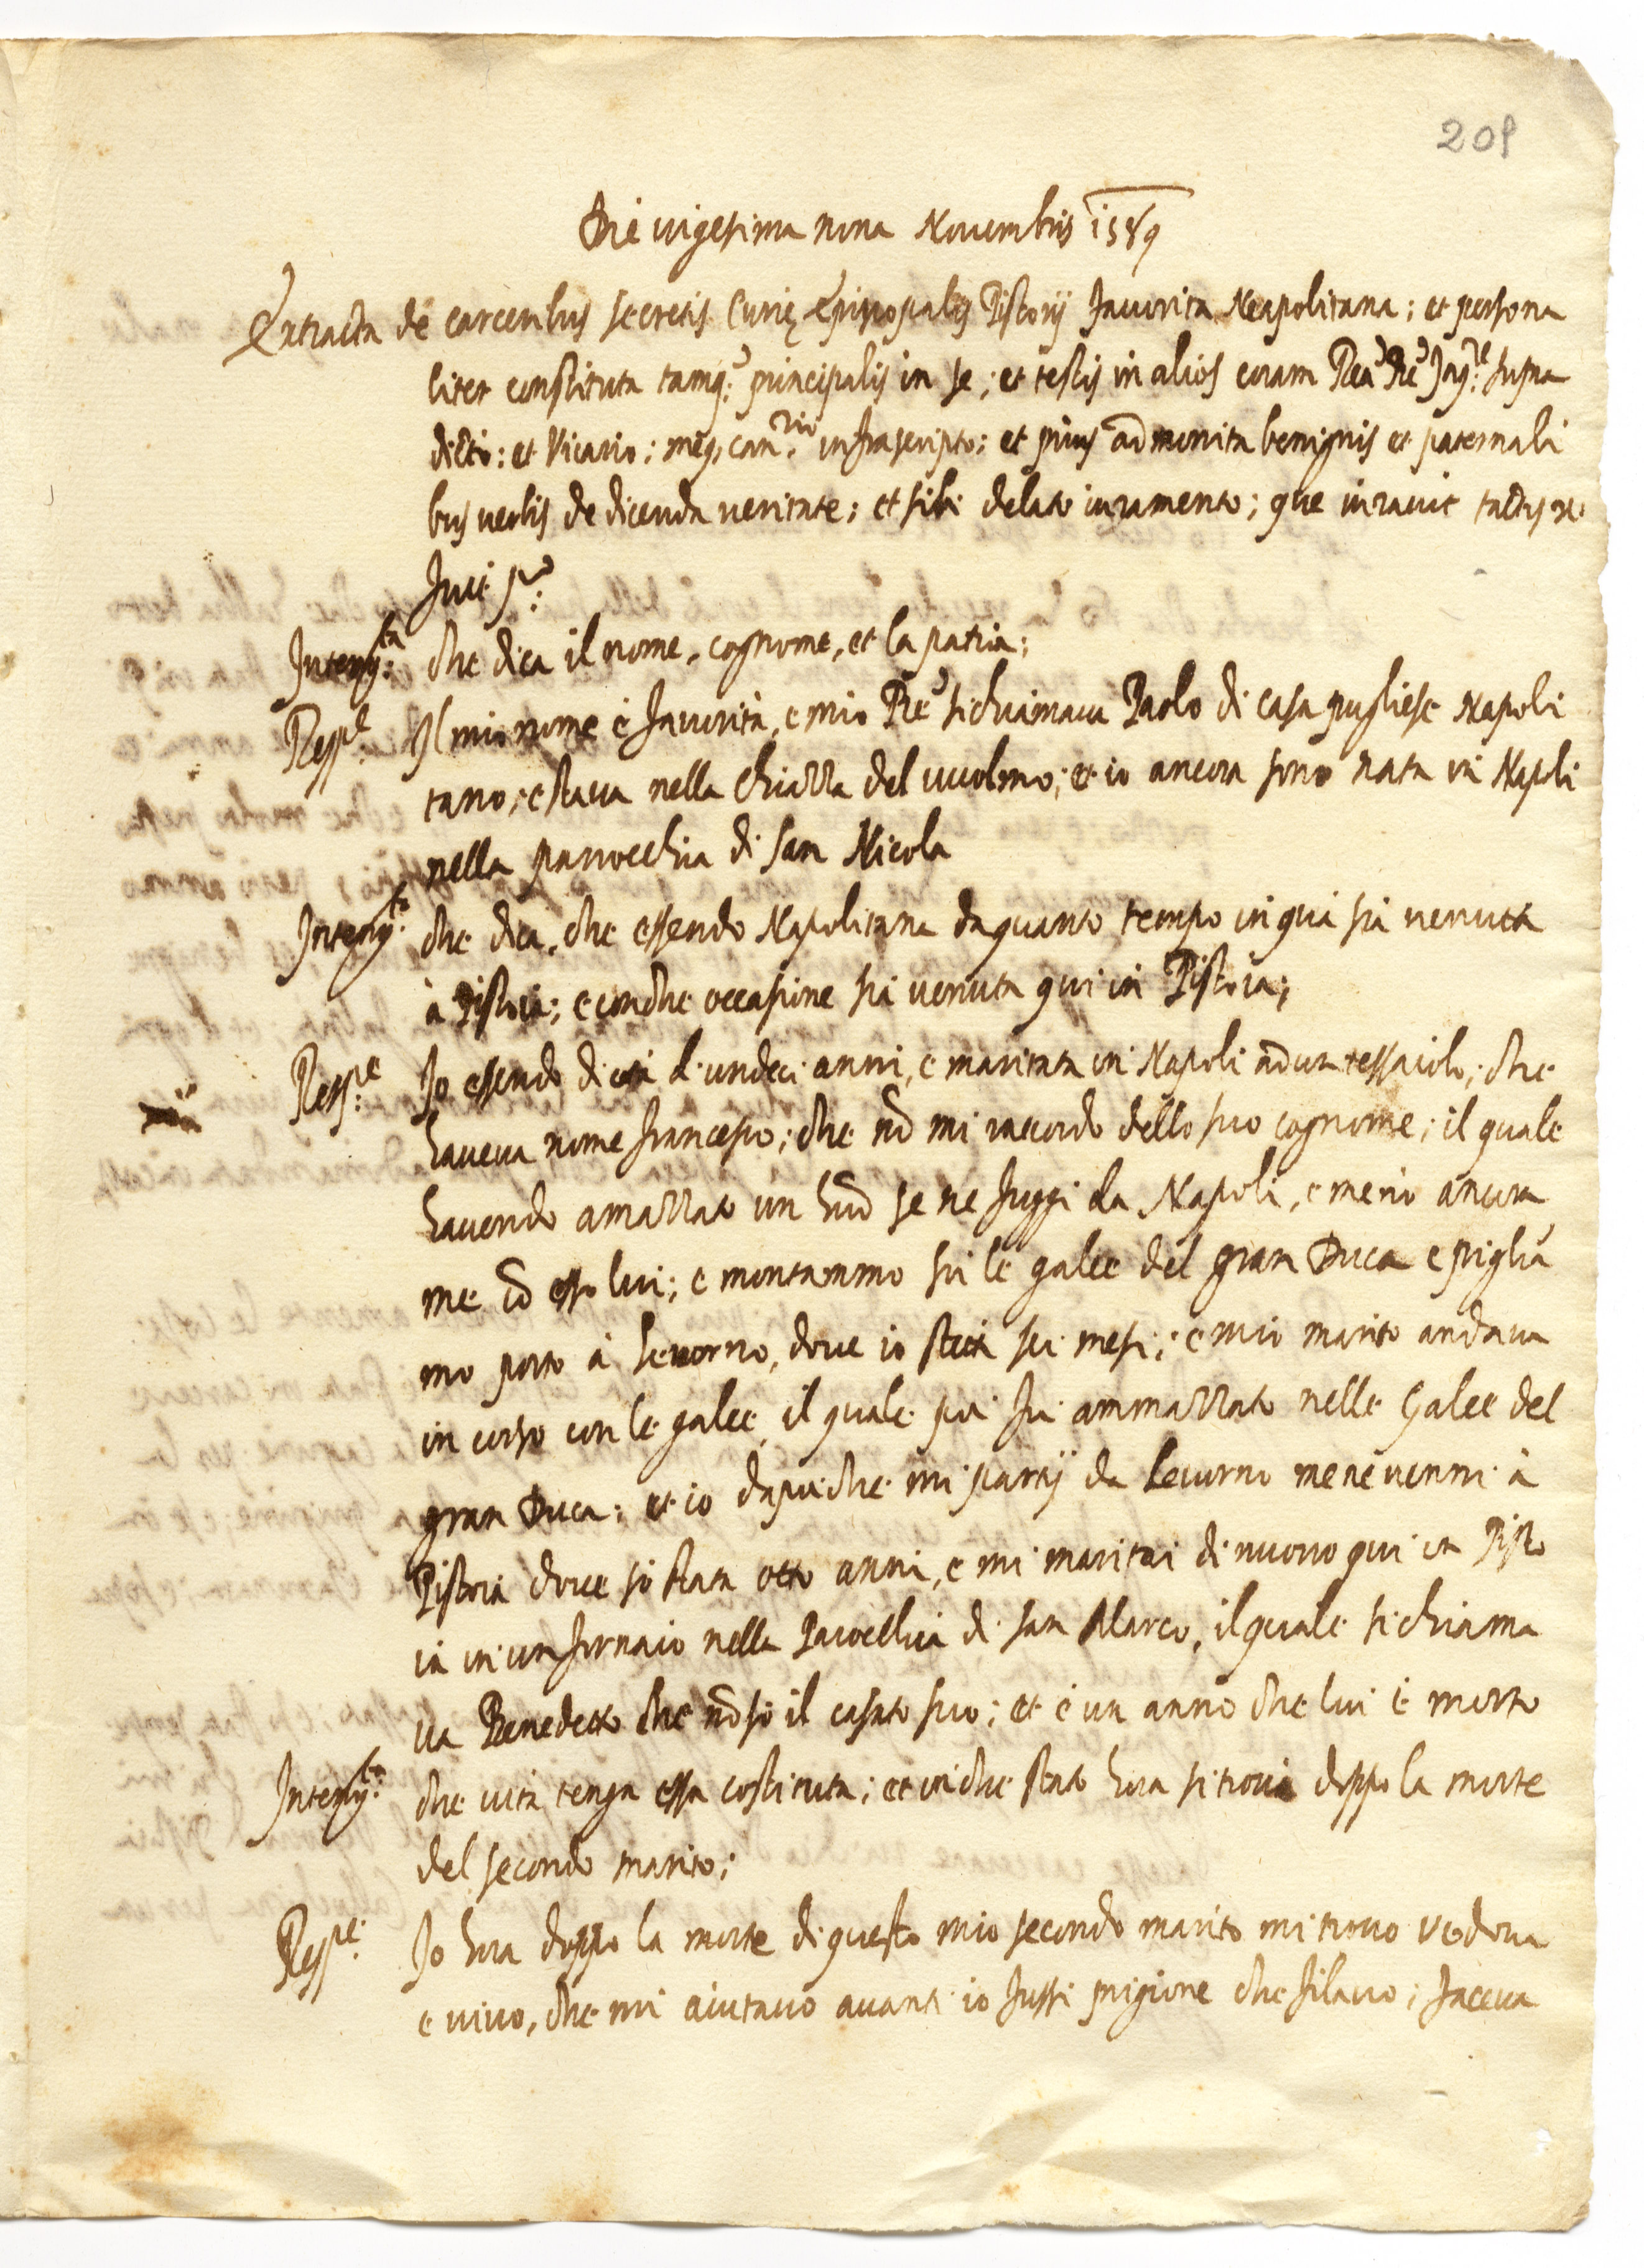 209
Die vigesima nona Novembris 1589
Extracta de carceribus secretis Curię Episcopalis Pistorij Favorita Neapolitana; et persona
liter constituta tamq. principalis in se; et testis in alios coram Rev. Pre Inq.re supra
dicto: et Vicario; meq. can.rio infrascripto; et prius admonita benignis et paternali
bus verbis de dicenda veritate; et sibi delato iuramento; que iuravit tactis
fuit
Interrg.ta che dica il nome, cognome, et la patria;
Resp.e Il mio nome è Favorita, e mio Pre si chiamava Paolo di casa pugliese Napoli
tano; e stava nella chiazza del vuolmo; et io ancora sono nata in Napoli
nella parrocchia di san Nicola
Interrg.ta che dica, che essendo Napolitana da quanto tempo in quà sia venuta
à Pistoia; e con che occasione sia venuta qui in Pistoia;
Resp.e Io essendo di età d'undeci anni, e maritata in Napoli ad un tessaiolo; che
haveva nome francesco; che nō mi raccordo dello suo cognome; il quale
havendo amazzato un huō se ne fuggì da Napoli, e menò ancora
me cō esso lui; e montammo sù le galee del gran Duca e piglia
mo porto à Levorno, dove io stetti sei mesi; e mio marito andava
in corso con le galee, il quale poi fù ammazzato nelle Galee del
gran Duca; et io dapoi che mi partij da Levorno me ne venni à
Pistoia dove sò stata otto anni, e mi maritai di nuovo qui in Pisto
ia in un fornaio nella Parocchia di san Marco, il quale si chiama
va Benedetto che nō sò il casato suo; et è un anno che lui è morto
Interrg.ta che vita tenga essa costituta; et in che stato hora si trova doppo la morte
del secondo marito;
Resp.e Io hora doppo la morte di questo mio secondo marito mi trovo vedova
e vivo, che mi aiutavo avanti io fussi prigione che filavo; faceva